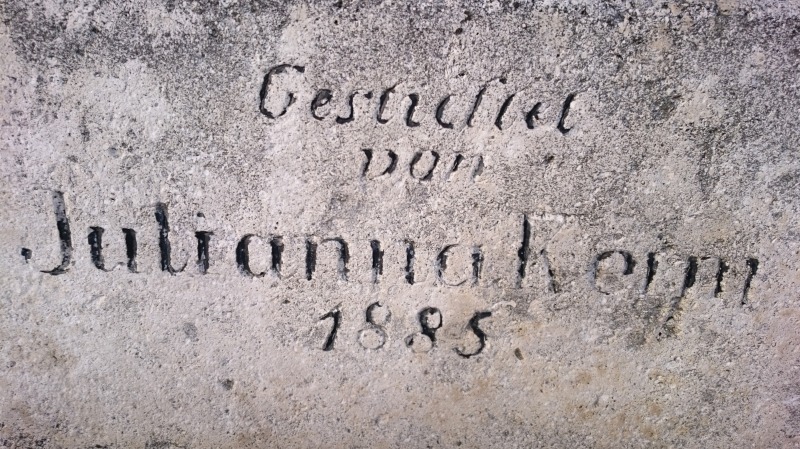 Gestiftet
von
Julianna
1885